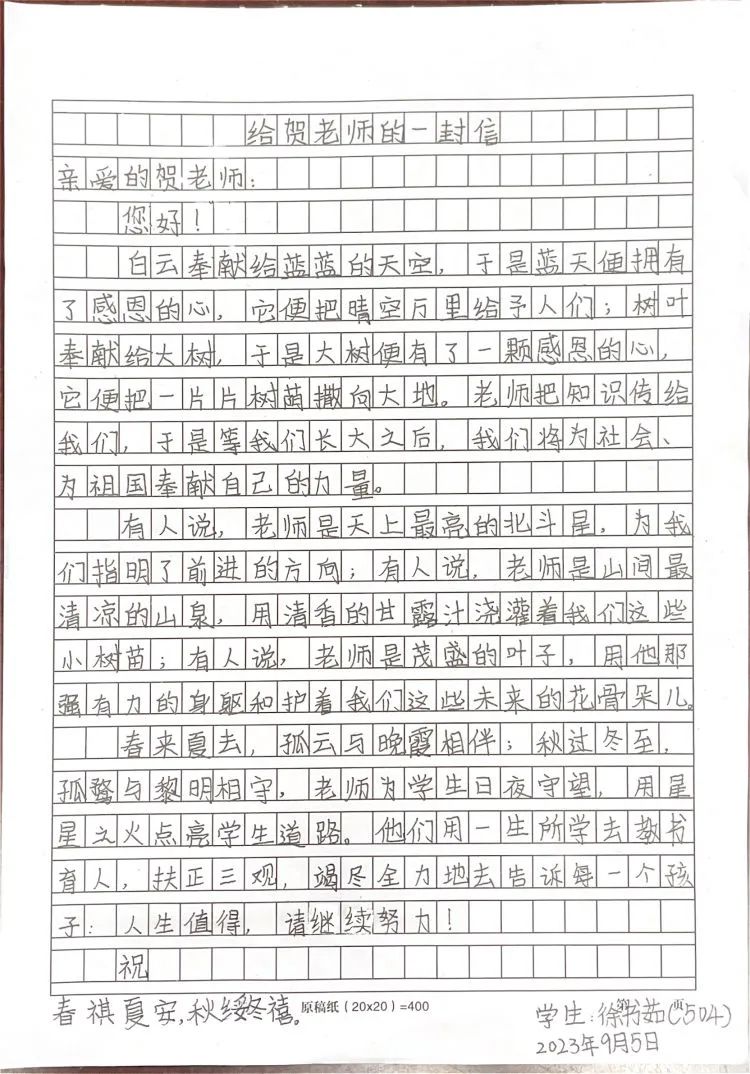 给贺老师的一封信
亲爱的贺老师：
您好！
白云奉献给蓝蓝的天空，于是蓝天便拥有
了感恩的心，它便把晴空万里给予人们；树叶
奉献给大树，于是大树便有了一颗感恩的心，
它便把一片片树茵撒向大地。老师把知识传给
我们，于是等我们长大之后，我们将为社会、
为祖国奉献自己的力量。
有人说，老师是天上最亮的北斗星，为我
们指明了前进的方向；有人说，老师是山间最
清凉的山泉，用清香的甘露汁浇灌着我们这些
小树苗；有人说，老师是茂盛的叶子，用他那
强有力的身躯和护着我们这些未来的花骨朵儿。
春来夏去，孤云与晚霞相伴；秋过冬至，
孤鹜与黎明相守，老师为学生日夜守望，用星
星之火点亮学生道路。他们用一生所学去教书
育人，扶正三观，竭尽全力地去告诉每一个孩
子：人生值得，请继续努力！
祝
春祺夏安，秋绥冬禧。
原稿纸（20x20）=400
学生：徐书茹（504）
2023年9月5日